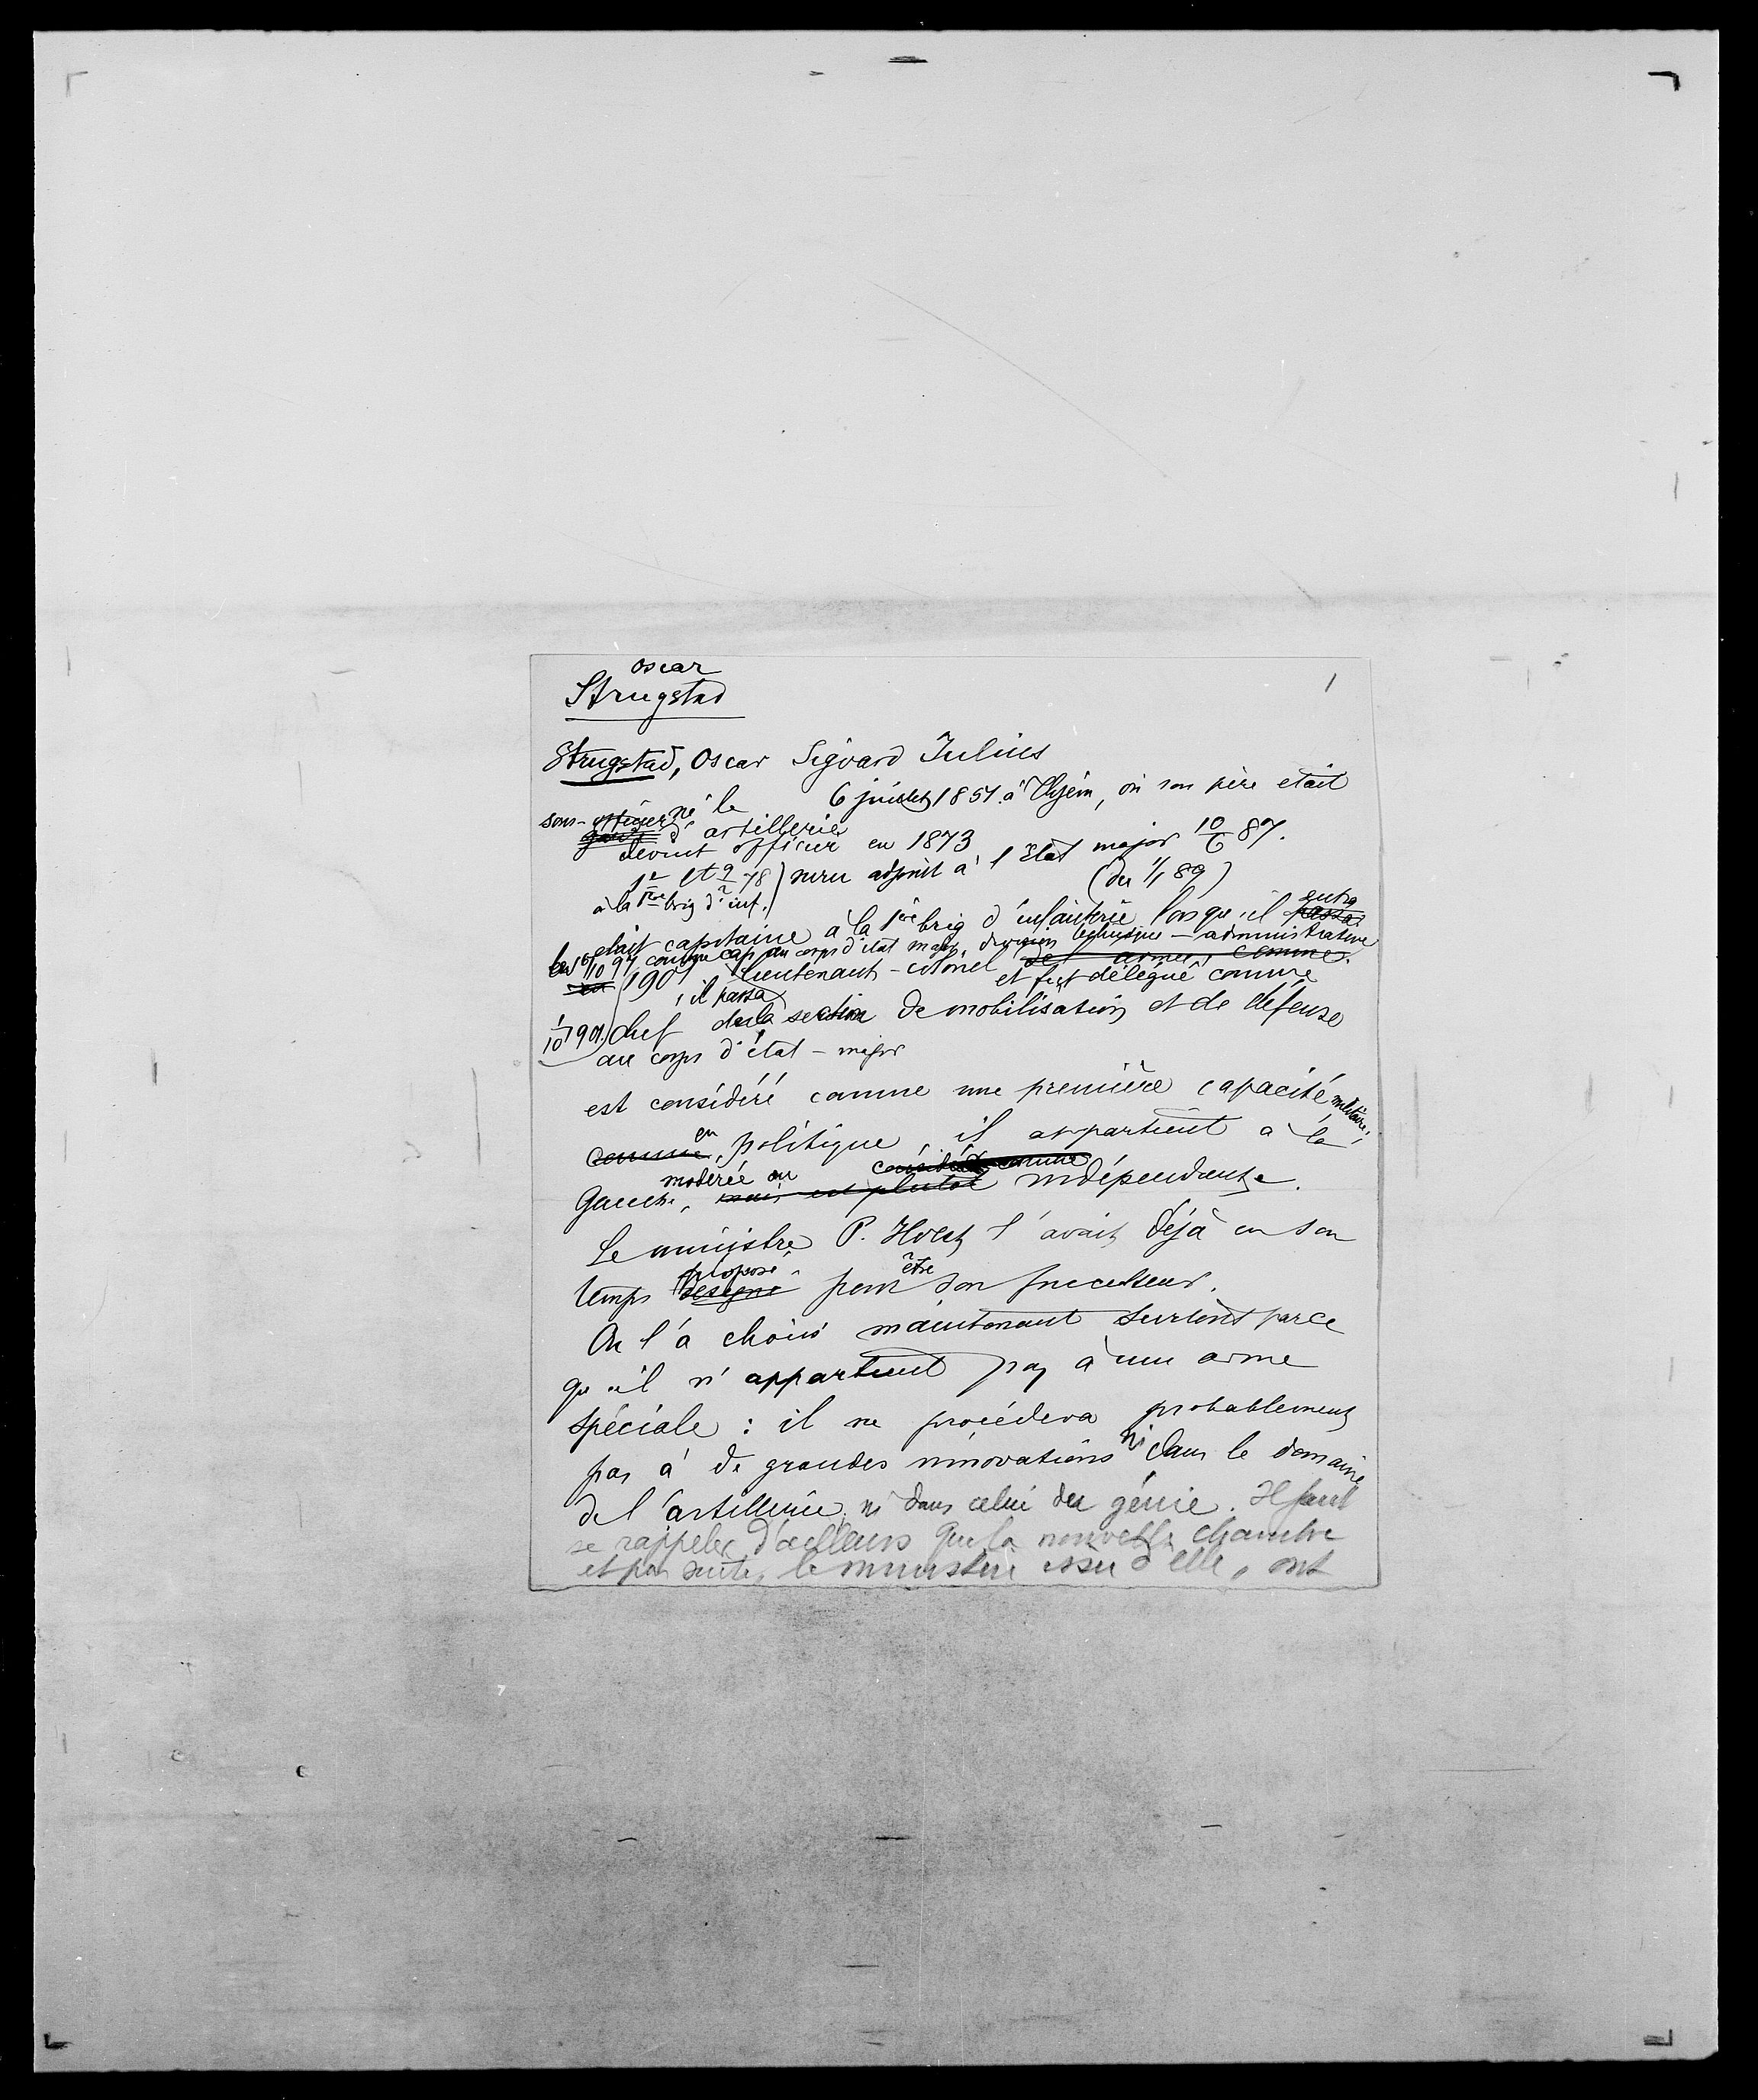 Oscar
Strugstad
1
Strugstad, Oscar Sigvard Julius
né le 6 juillet 1851. à Thjem, où son père etait
sous-officier d'artillerie
devint officier en 1873
1er Lt 9/2 78) adjoint à l'Etat major 10/6 87.
à la 1ère brig d'inf.) (du 1/1 89)
entra
était capitaine à la 1ère brig d'infanterie lorsqu'il passa
le 1er/10 97 comme cap au corps d'état maj., division technique-administrative
en 1901 lieutenant-colonel des armes, comme
, il passa et fut délégué comme
1/10 1901. chef de la section de mobilisation et de défense
au corps d'état-major
est considéré comme une première capacité militaire;
comme en politique, il appartient à la
modérée ou considéré comme
Gauche, mais est plutot indépendante.
Le ministre P. Holst l'avait déjà en son
proposé être
temps désigné pour son successeur.
On l'a choisi maintenant surtout parce
qu'il n'appartient pas à une arme
spéciale : il ne procédera probablement
pas à de grandes innovations ni dans le domaine
de l'artillerie, ni dans celui du génie. Il faut
se rappeler d'ailleurs que la nouvelle chambre
et par suite, le ministère issu d'elle, ont